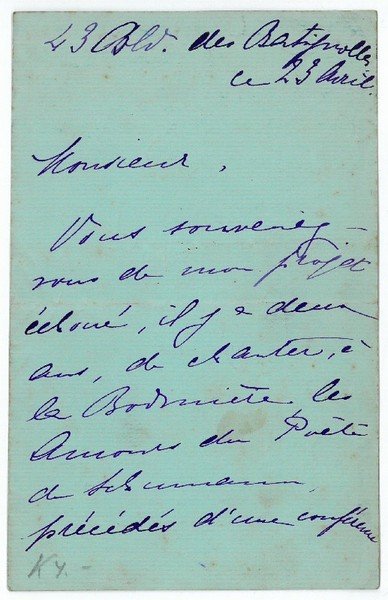 43 Bld. des Batignolles
ce 23 Avril.
Monsieur,
Vous souvenez-
vous de mon projet
échoué, il y a deux
ans, de chanter, à
la Bodinière les
Amours du Poète
de Schumann,
précédés d'une conférence
K 4.-